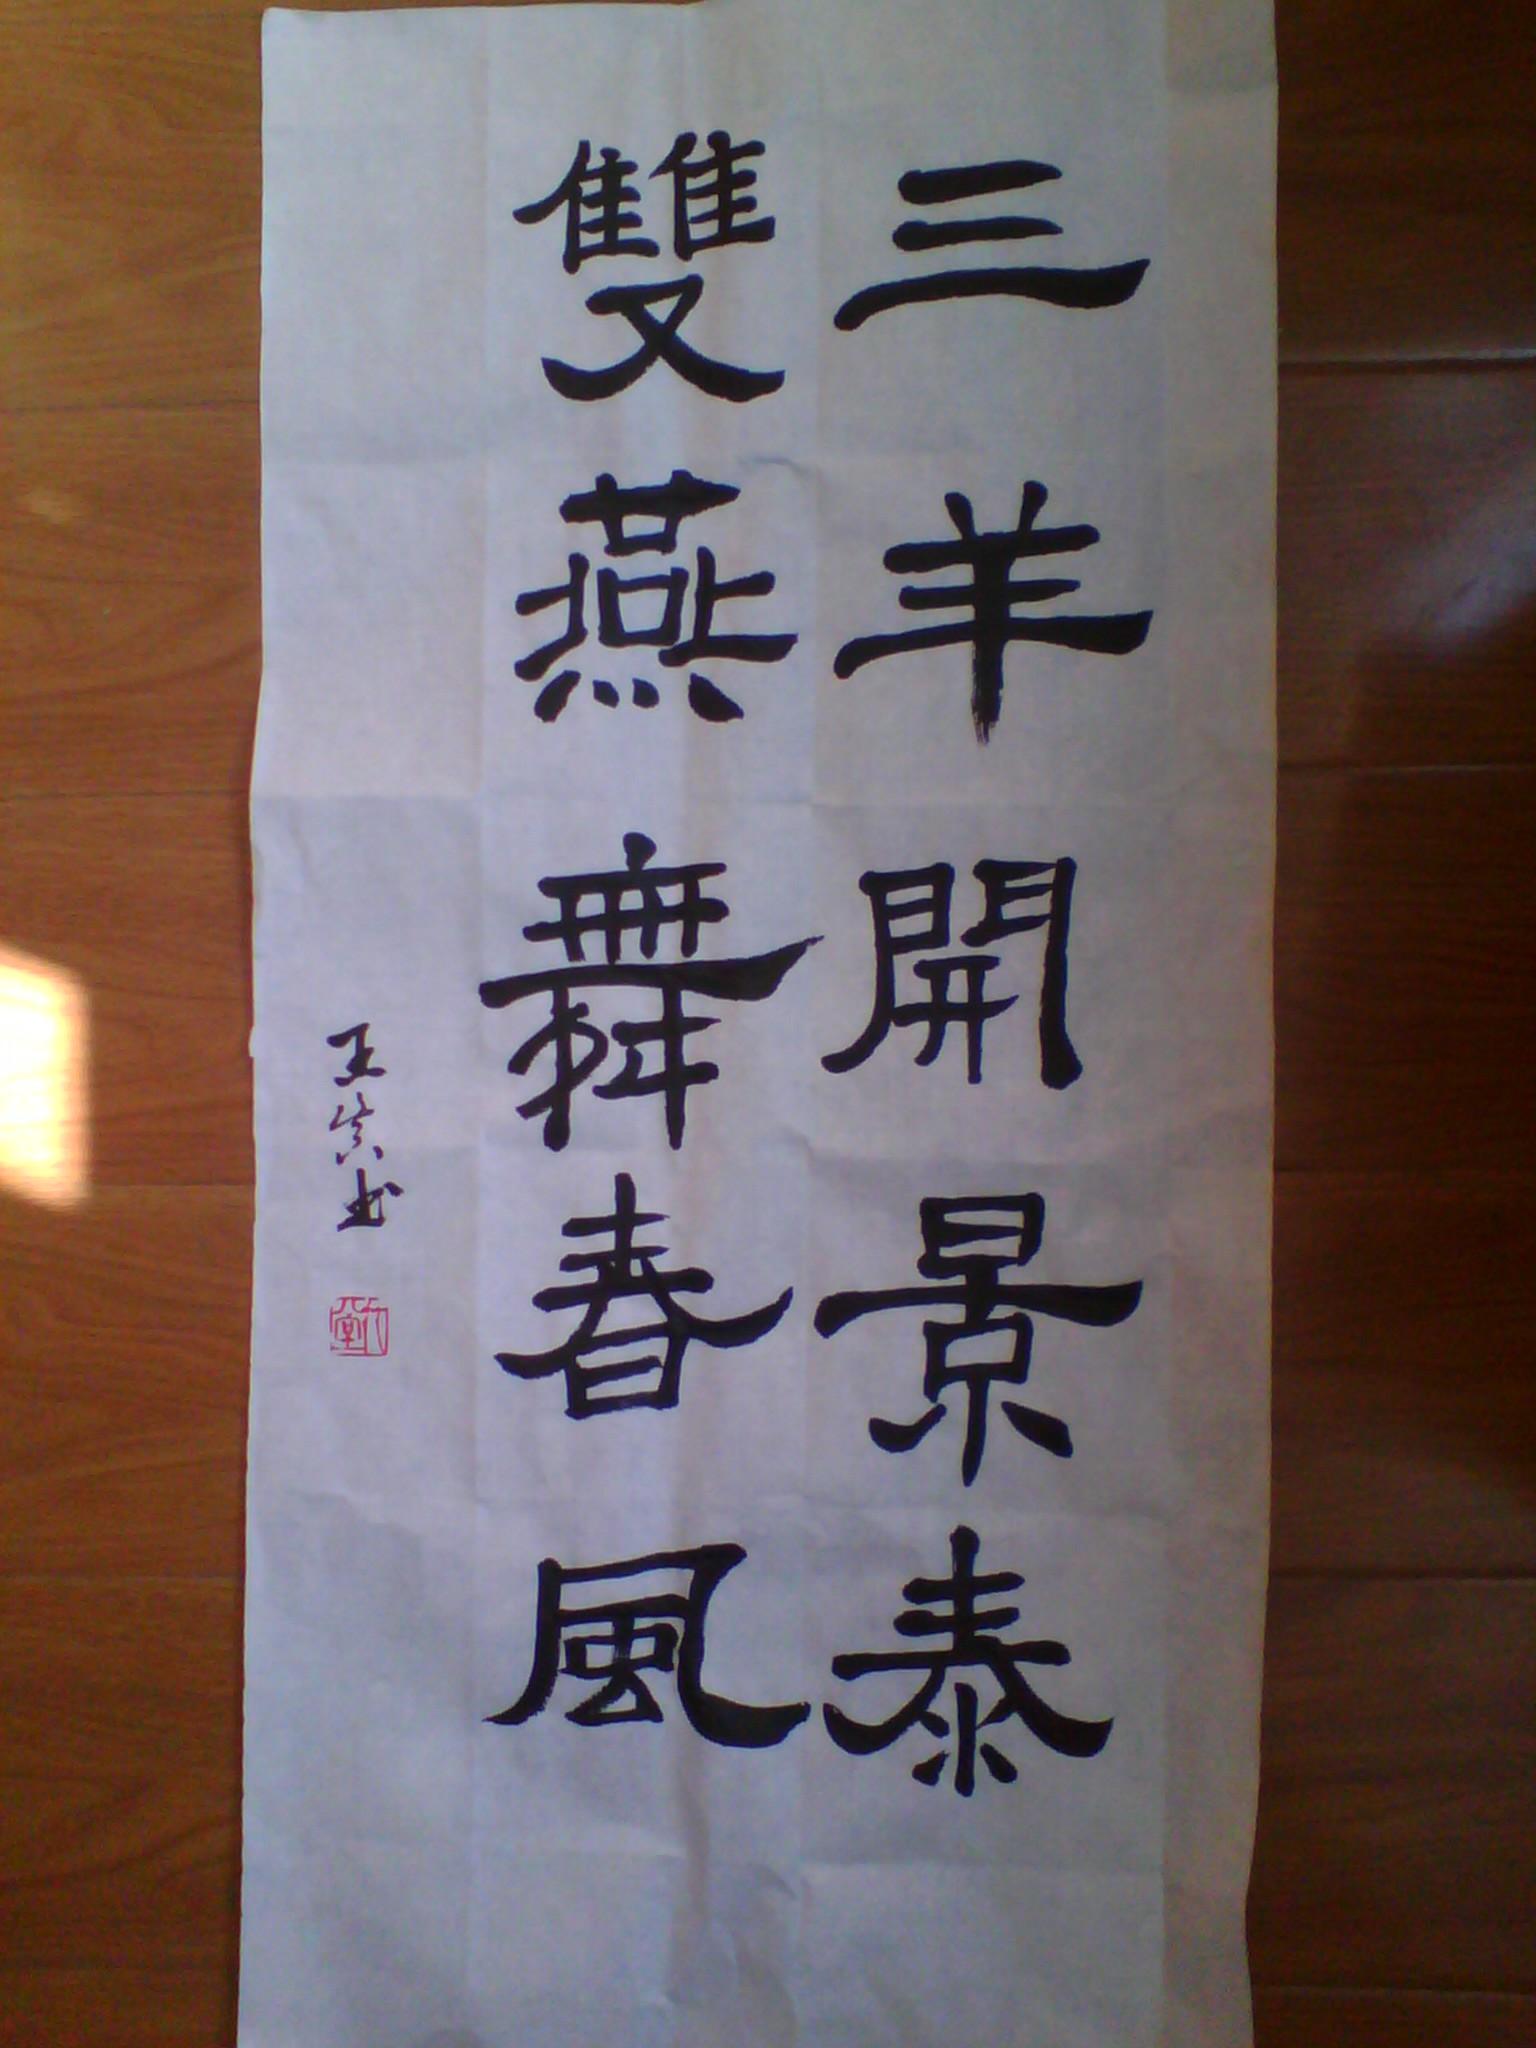 三羊開景泰
雙燕舞春風
王寘书